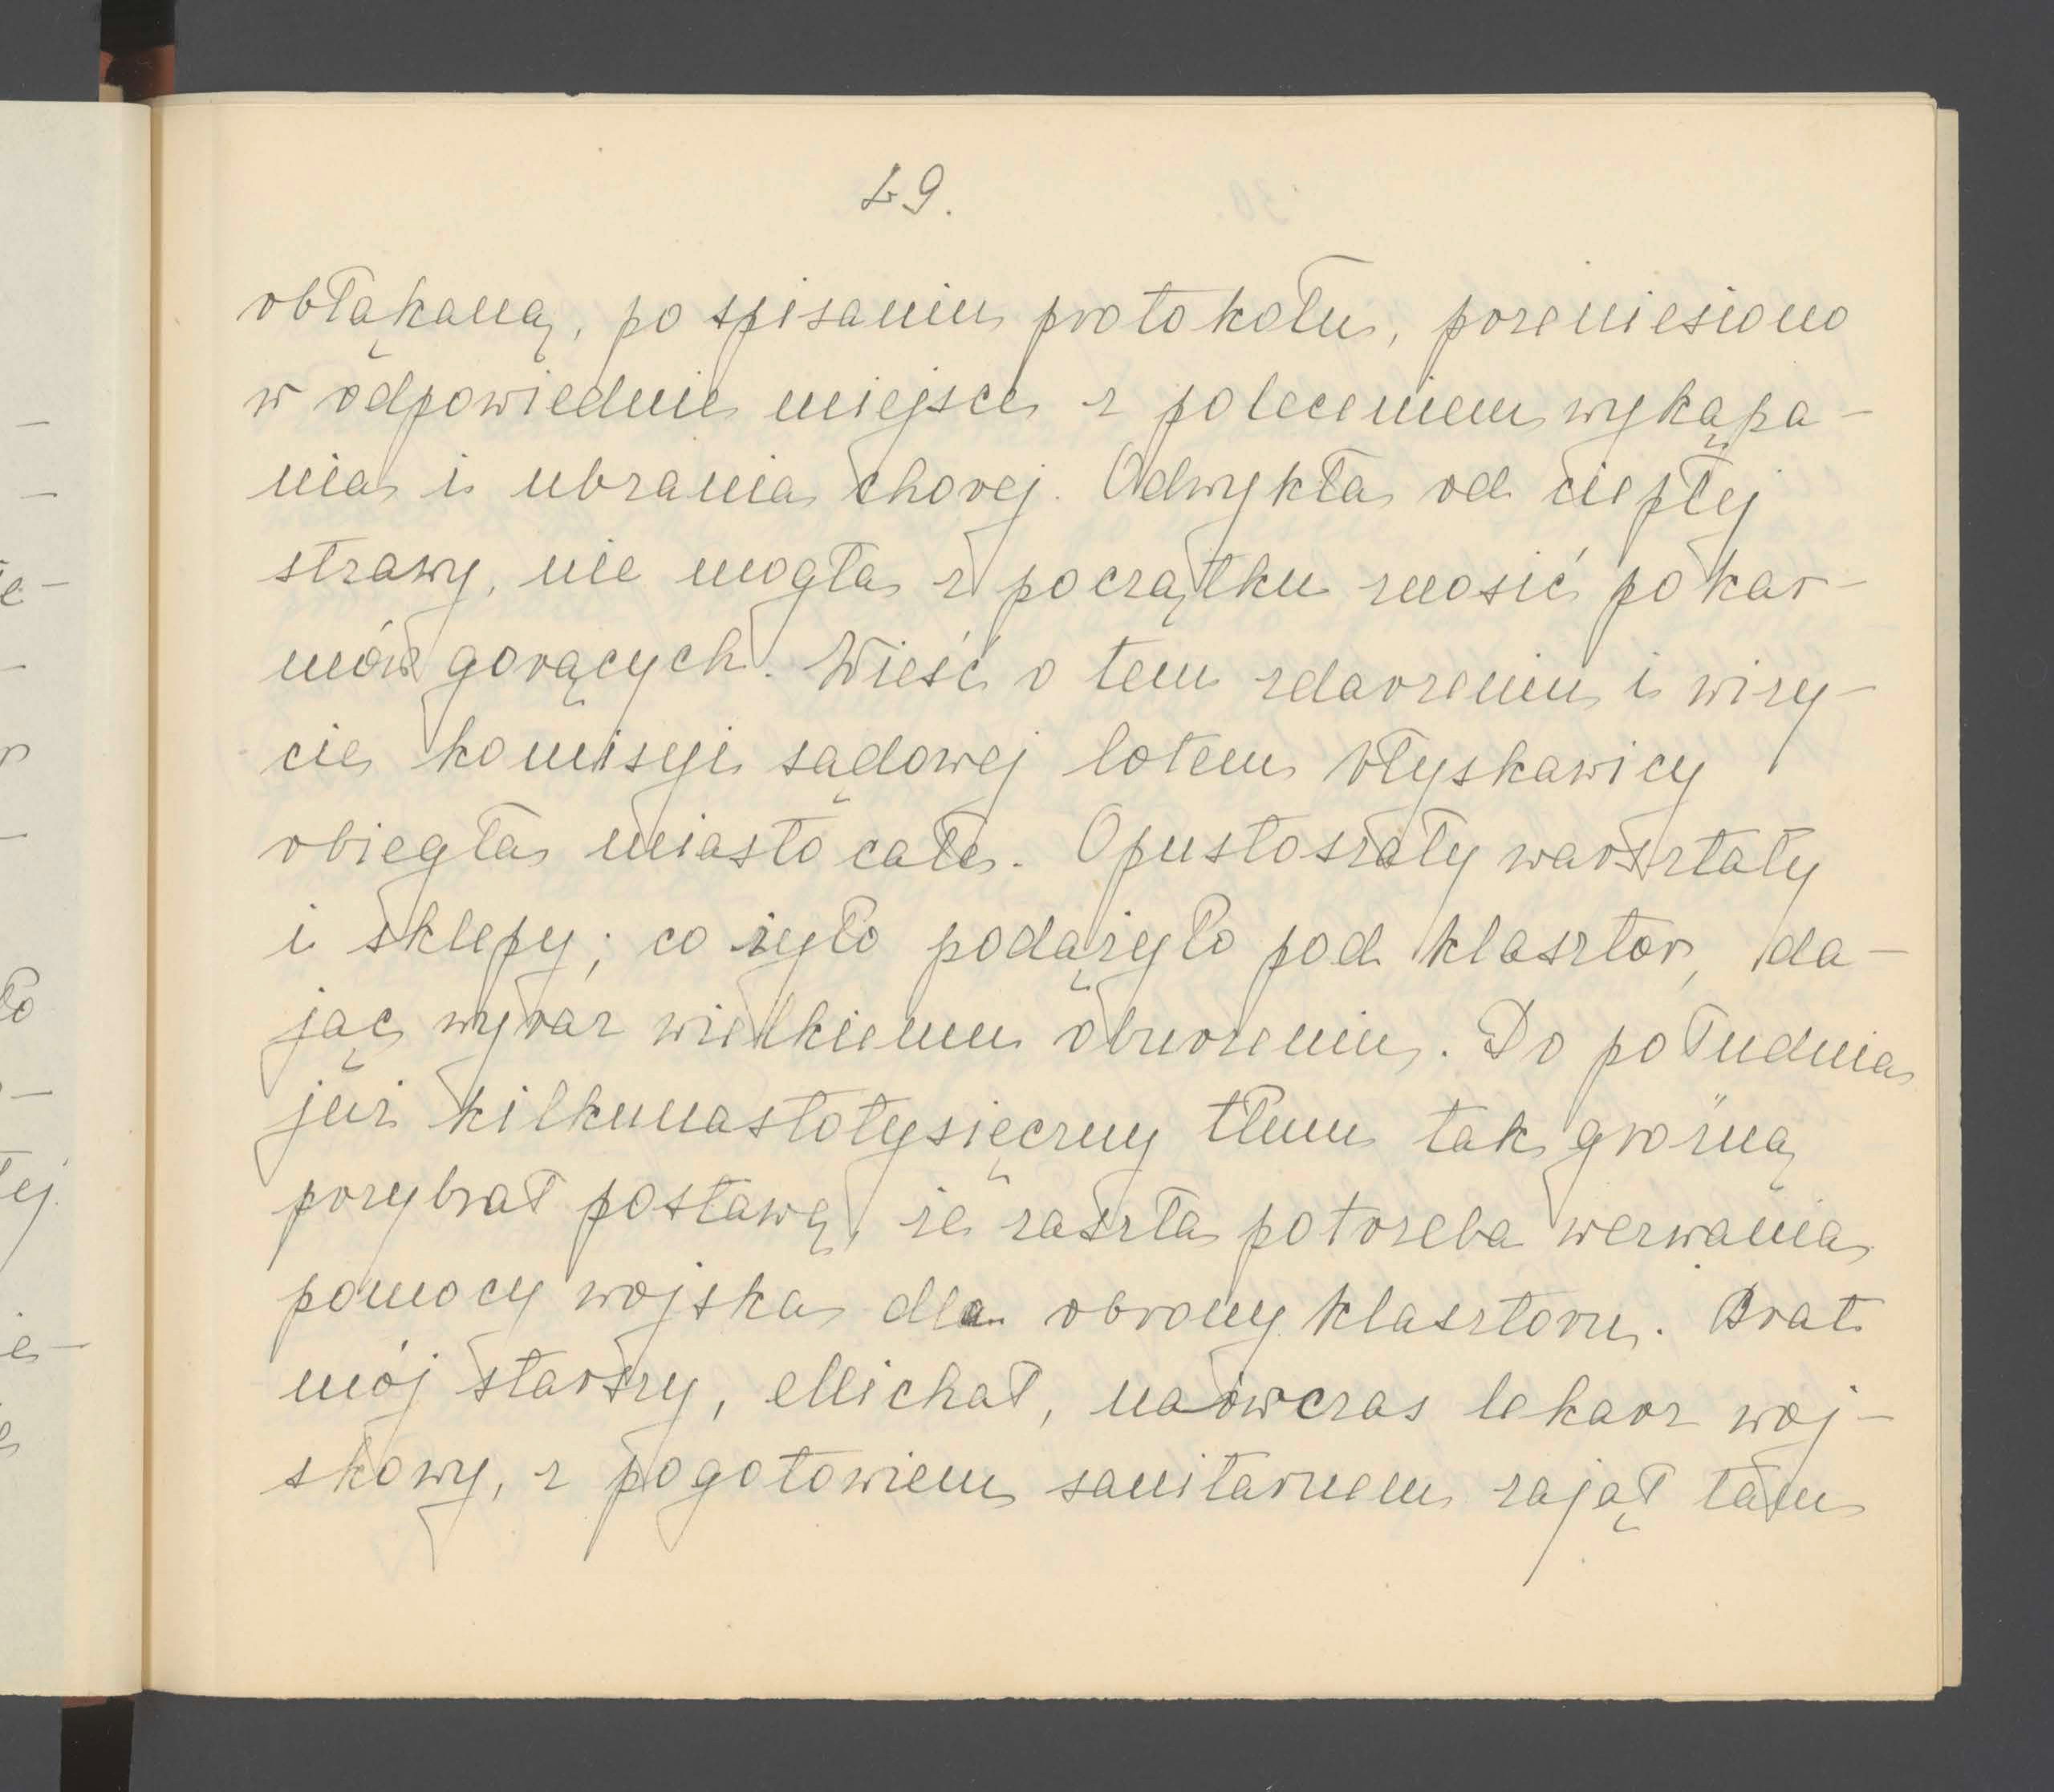 29.
obłąkaną, po spisaniu protokołu, przeniesiono
w odpowiednie miejsce z poleceniem wykąpa-
nia i ubrania chorej. Odwykła od ciepłej
strawy, nie mogła z początku znosić pokar-
mów gorących. Wieść o tem zdarzeniu i wizy-
cie komisyi sądowej lotem błyskawicy
obiegła miasto całe. Opustoszały warsztaty
i sklepy; co żyło podążyło pod klasztor, da-
jąc wyraz wielkiemu oburzeniu. Do południa
już kilkunastotysięczny tłum tak groźną
przybrał postawę, że zaszła potrzeba wezwania
pomocy wojska dla obrony klasztoru. Brat
mój starszy, Michał, naówczas lekarz woj-
skowy, z pogotowiem sanitarnem zajął tam